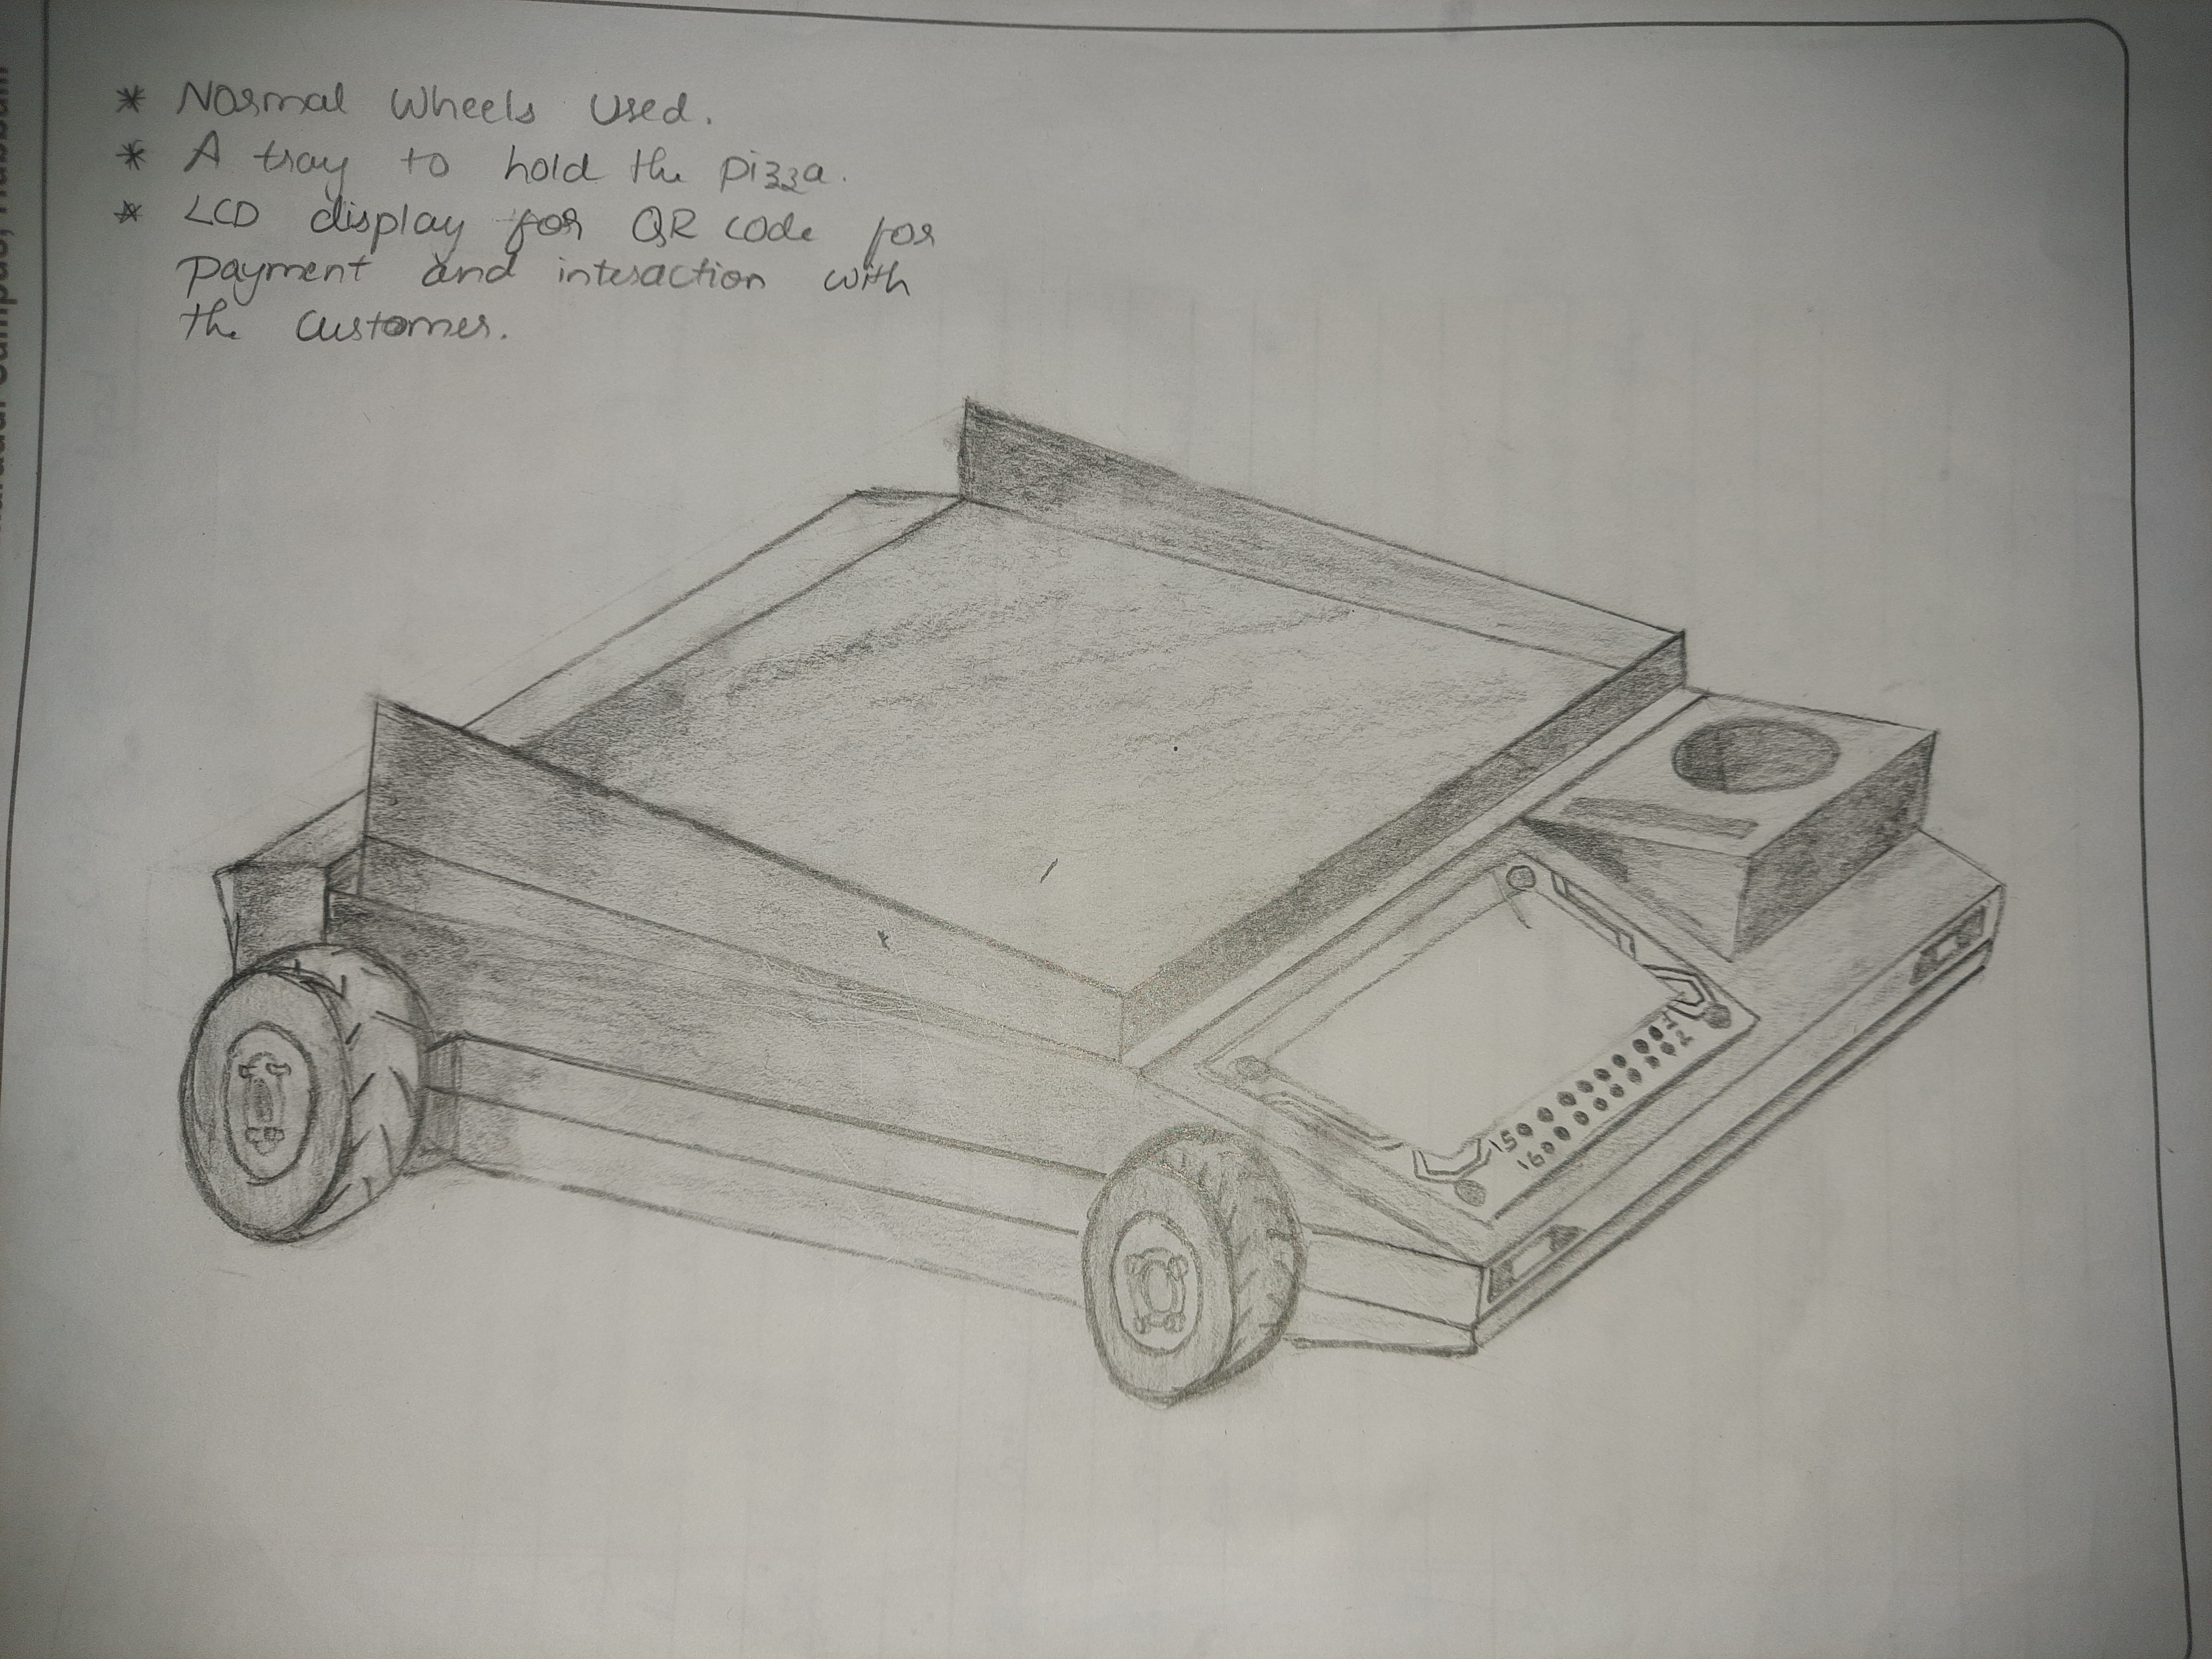 * Normal Wheels Used.
* A tray to hold the pizza.
* LCD display for QR code for
payment and interaction with
the customer.
1 2
15
16